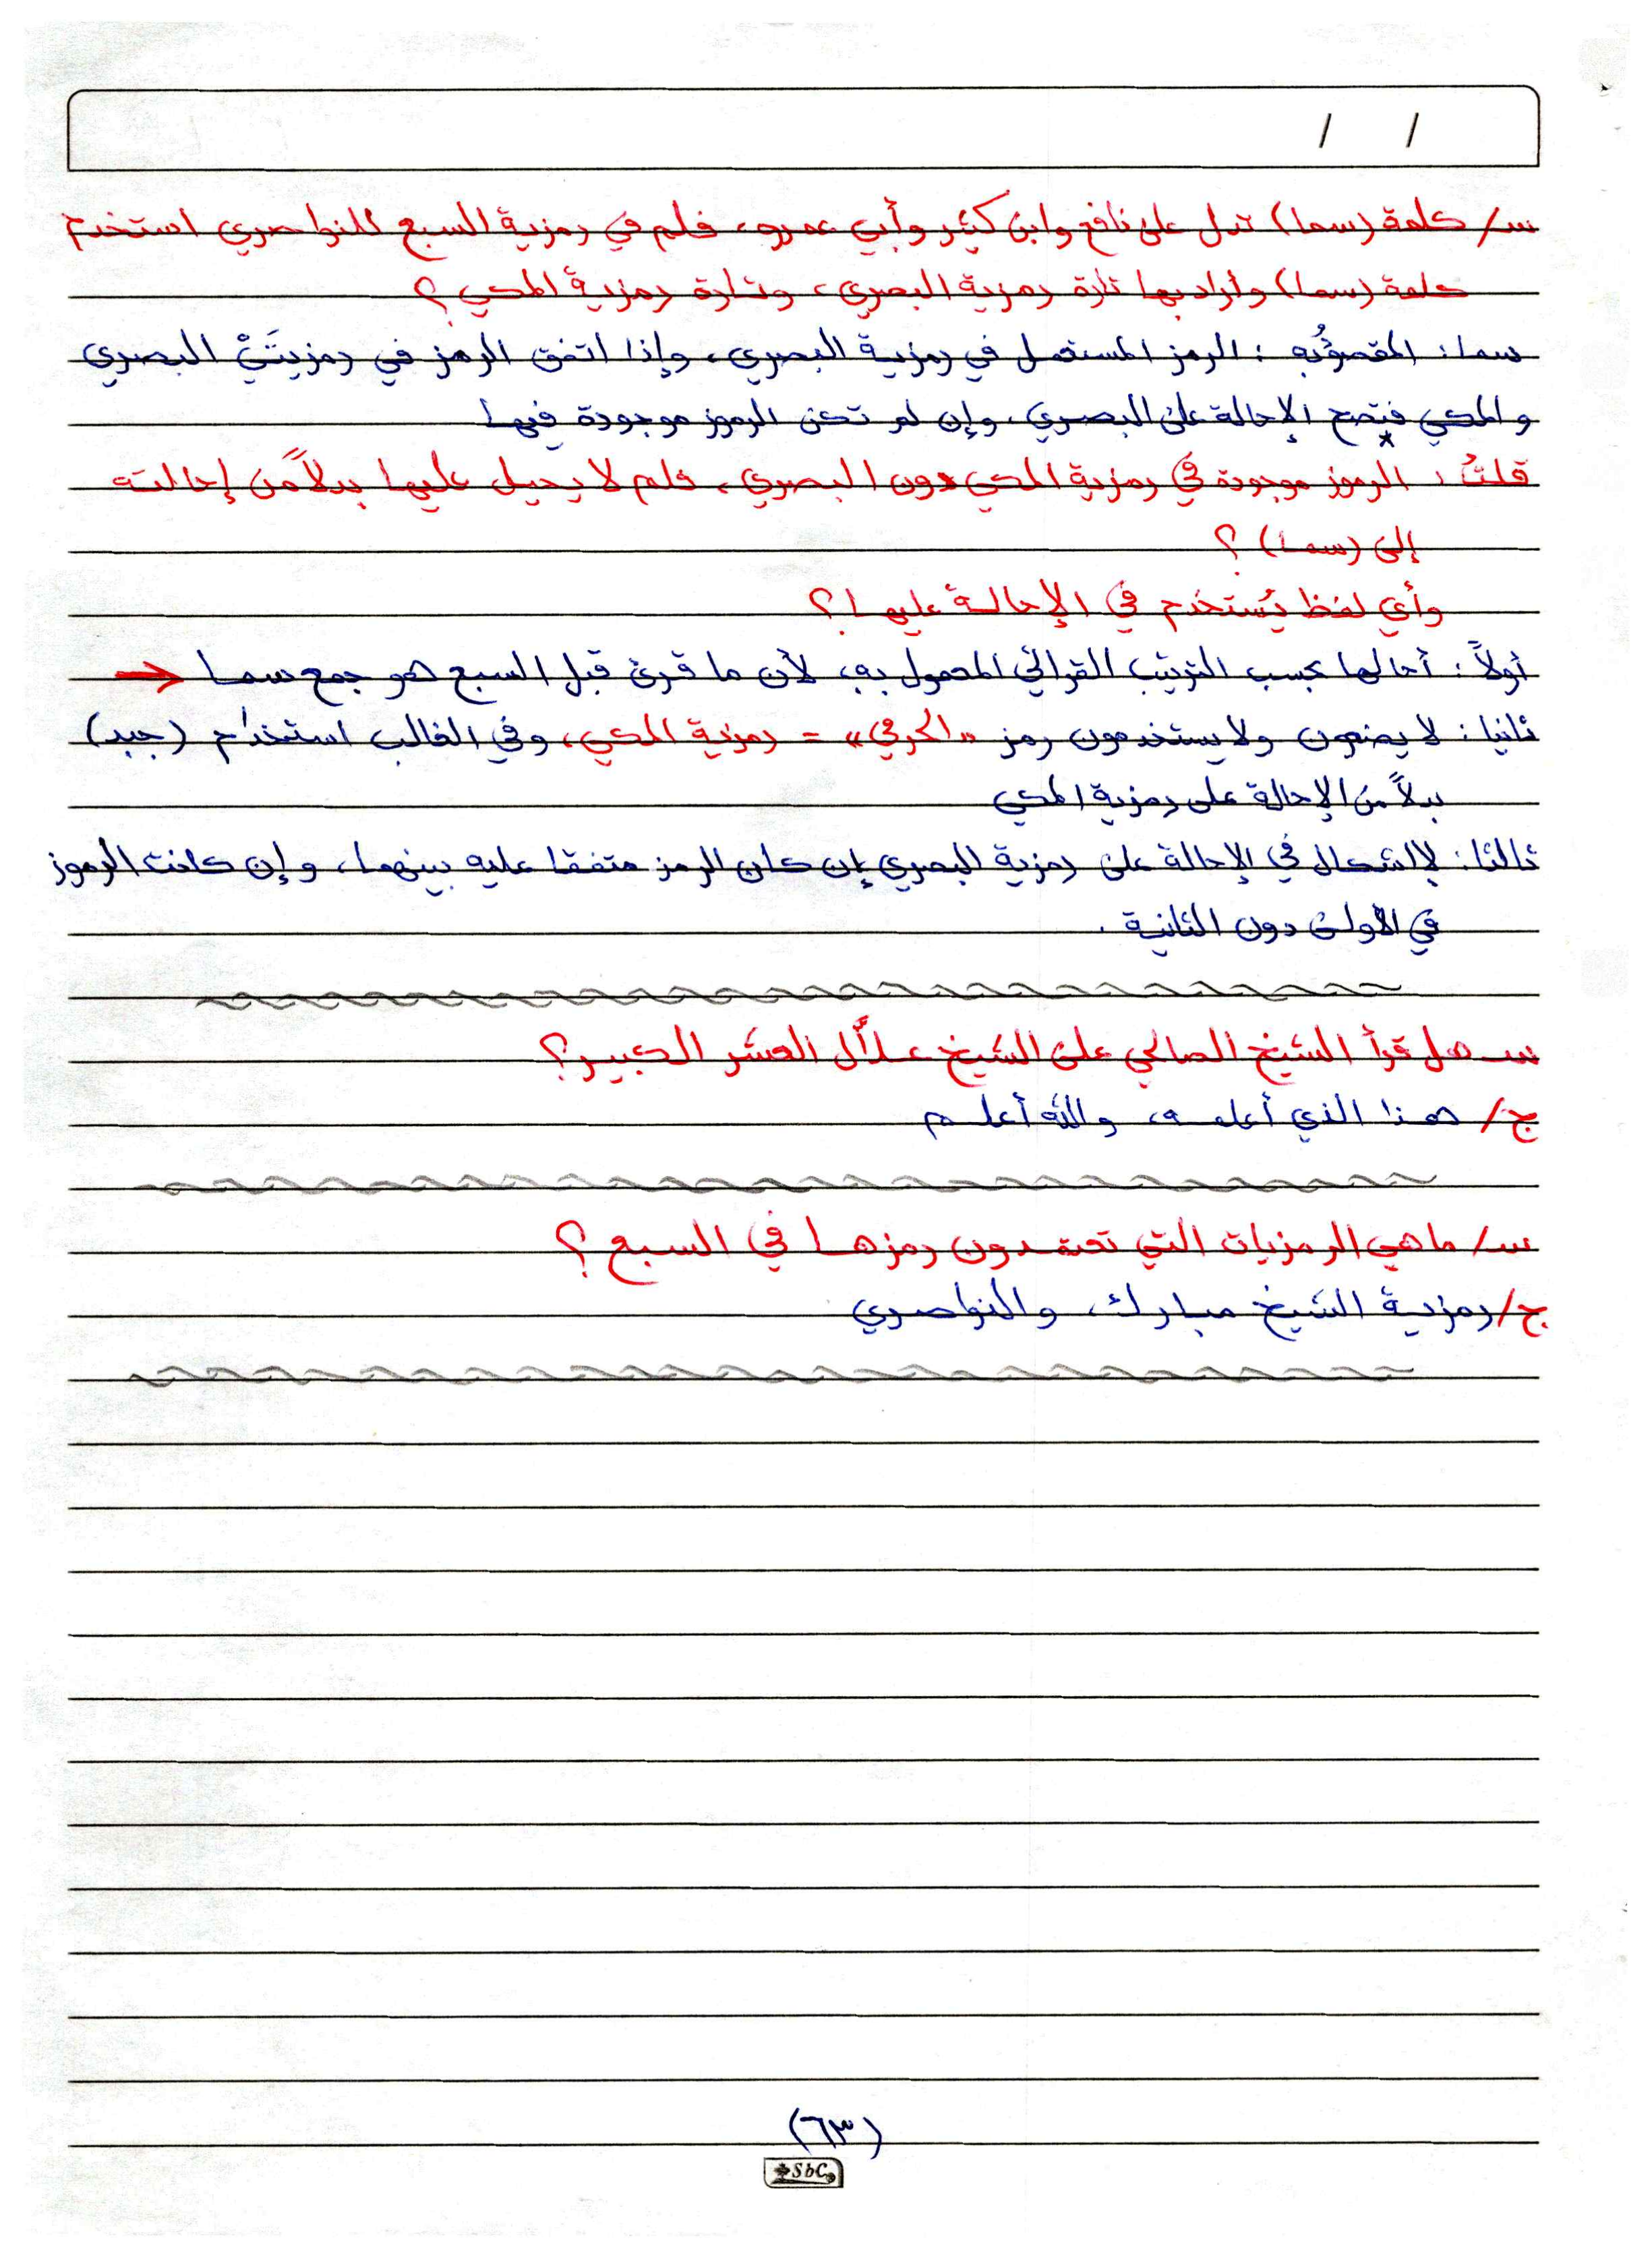 / /
س/ كلمة (سما) تدل على نافع وابن كثير وأبي عمرو، فلم في رمزية السبع للنواصري استخدم
كلمة (سما) وأراد بها تارة رمزية البصري، وتارة رمزية المكي؟
سما: المقصود به: الرمز المستعمل في رمزية البصري، وإذا اتفق الرمز في رمزيتَيْ البصري
والمكي فتصح الإحالة على البصري، وإن لم تكن الرموز موجودة فيها
قلتُ: الرموز موجودة في رمزية المكي دون البصري، فلم لا يحيل عليها بدلاً من إحالته
إلى (سما)؟
وأي لفظ يُستخدم في الإحالة عليها؟
أولاً: أحالها بحسب الترتيب القرائي المعمول به، لأن ما قرئ قبل السبع هو جمع سما
ثانيا: لا يضعون ولا يستخدمون رمز «الحرمي» = رمزية المكي، وفي الغالب استخدام (جبد)
بدلاً من الإحالة على رمزية المكي
ثالثا: لا إشكال في الإحالة على رمزية البصري إن كان الرمز متفقا عليه بينهما، وإن كانت الرموز
في الأولى دون الثانية.
س- هل قرأ الشيخ الصالحي على الشيخ علاَّل العشر الكبير؟
ج/ هذا الذي أعلمه، والله أعلم
س/ ما هي الرمزيات التي تعتمدون رمزها في السبع؟
ج/ رمزية الشيخ مبارك، والنواصري
(٦٣)
SbC